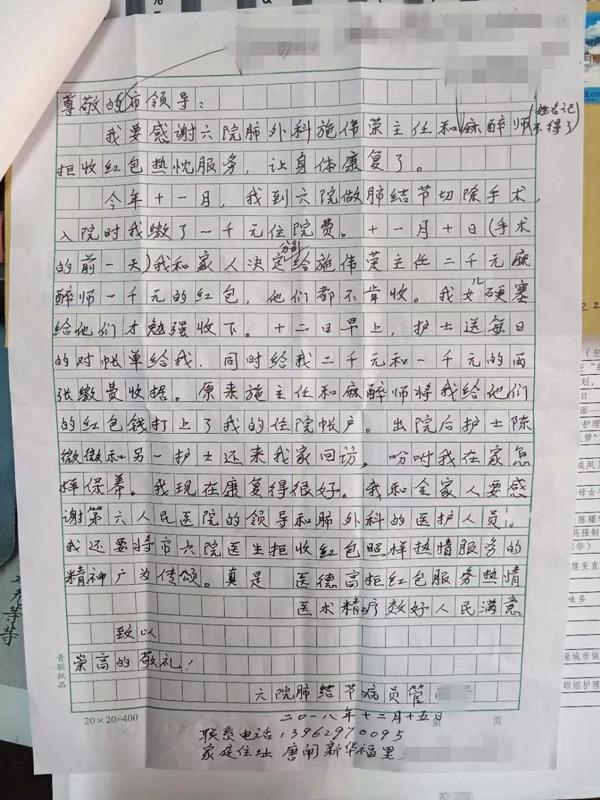 尊敬的市领导：
我要感谢六院肺外科施伟荣主任和麻醉师(姓名记不得了)
拒收红包热忱服务，让身体康复了。
今年十一月，我到六院做肺结节切除手术，
入院时我缴了一千元住院费。十一月十日(手术
的前一天)我和家人决定分别给施伟荣主任二千元麻
醉师一千元的红包，他们都不肯收。我女儿硬塞
给他们才勉强收下。十二日早上，护士送每日
的对帐单给我，同时给我二千元和一千元的两
张缴费收据。原来施主任和麻醉师将我给他们
的红包钱打上了我的住院帐户。出院后护士陈
微微和另一护士还来我家回访，吩咐我在家怎
样保养。我现在康复得很好。我和全家人要感
谢第六人民医院的领导和肺外科的医护人员！
我还要将市六院医生拒收红包照样热情服务的
精神广为传颂。真是 医德高拒红包服务热情
医术精疗效好人民满意
致以
崇高的敬礼！
六院肺结节病员管
二〇一八年十二月十五日
20×20=400
第 页
青联纸品
联系电话 13962970095
家庭住址 唐闸新华福里